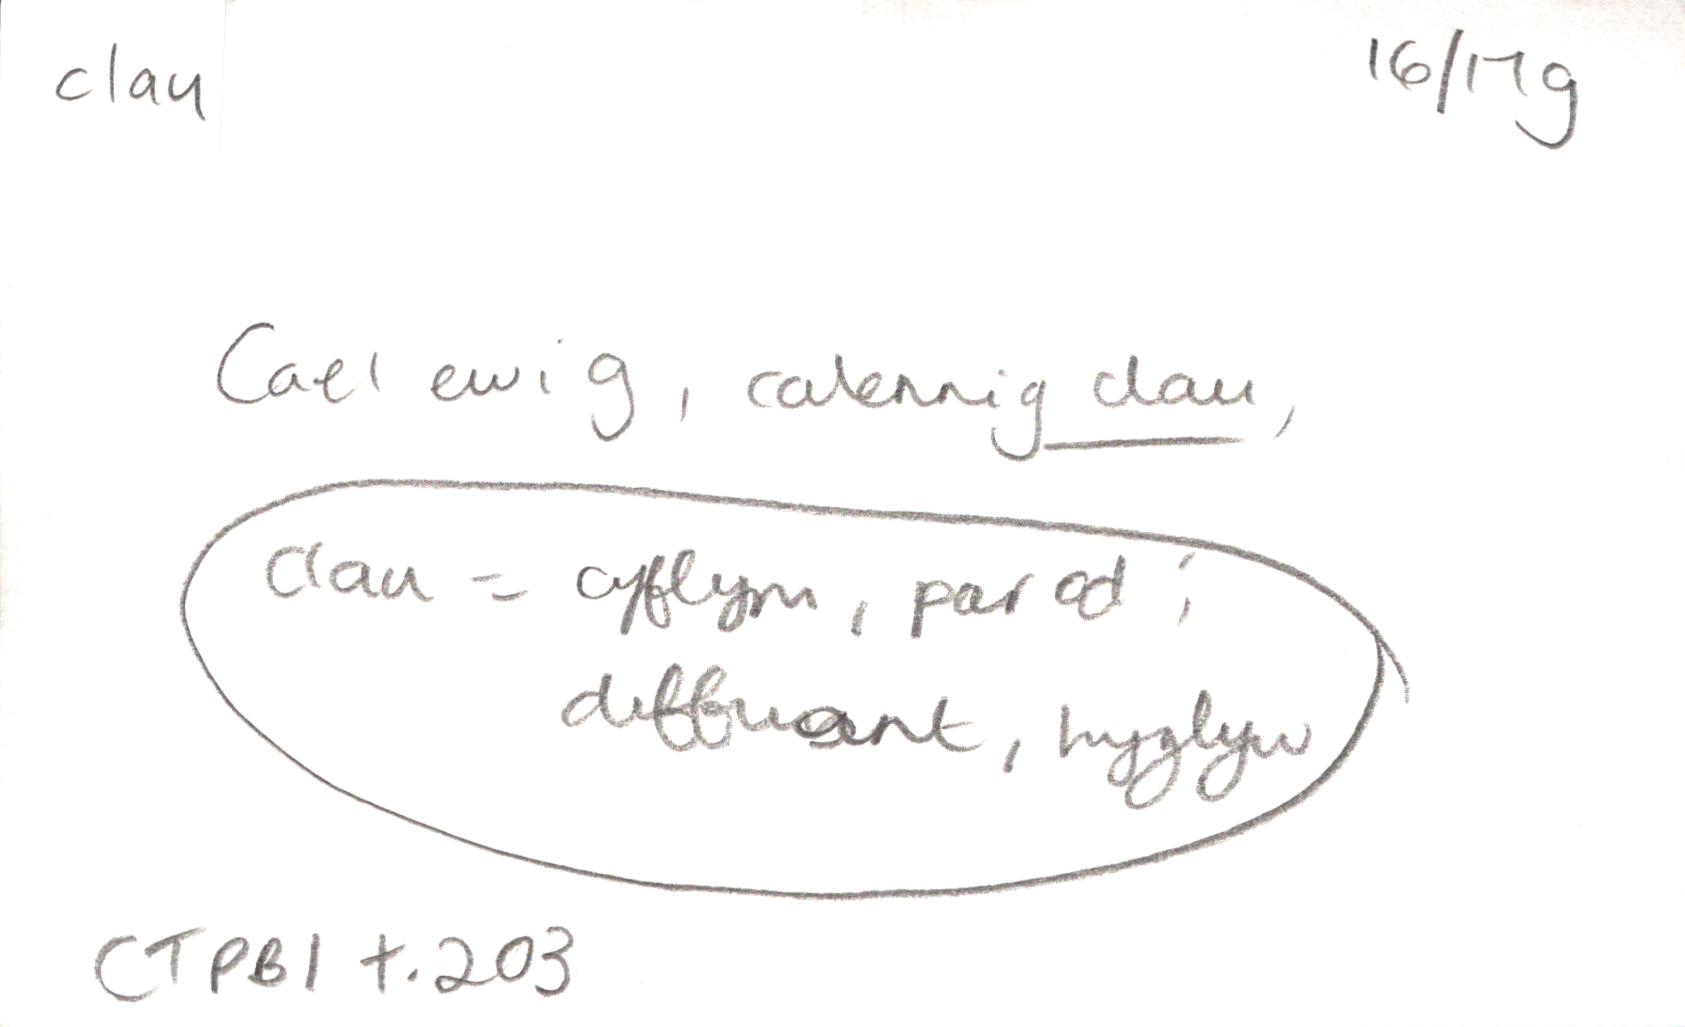 clau 16/17g
Cael ewig, calennig clau,
clau = cyflym, parod;
diffuant, hyglyw
CTPB1 t.203